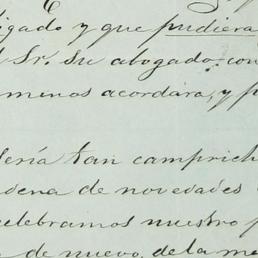 igado y que pudiera
Sr. su abogado con
menos acordara, y p
ería tan camprich
dena de novedades
celebramos nuestro p
de nuevo, de la me